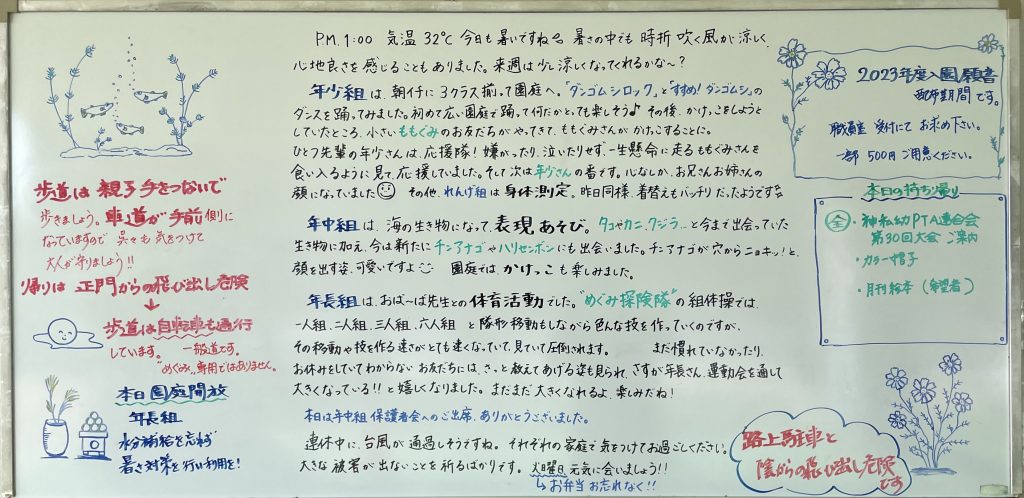 歩道は 親子 手をつないで
歩きましょう。車道が手前側に
なっていますので 呉々も 気をつけて
大人が守りましょう!!
帰りは 正門からの飛び出し危険
歩道は自転車も通行
しています。 一般道です。
"めぐみ" 専用ではありません。
本日 園庭開放
年長組
水分補給を忘れず
暑さ対策を行い利用を!
PM. 1:00 気温 32℃ 今日も暑いですね 暑さの中でも 時折 吹く風が涼しく、
心地良さを感じることもありました。来週は少し涼しくなってくれるかな〜?
年少組は、朝イチに3クラス揃って園庭へ。"ダンゴムシロック"と"すすめ!ダンゴムシ"の
ダンスを踊ってみました。初めて広い園庭で踊って何だかとっても楽しそう♪ その後、かけっこをしようと
していたところ、小さいももぐみのお友だちが やってきて、ももぐみさんが かけっこすることに。
ひとつ先輩の年少さんは、応援隊!嫌がったり、泣いたりせず、一生懸命に走るももぐみさんを
食い入るように見て、応援していました。そして次は年少さんの番です。心なしか、お兄さんお姉さんの
顔になっていました その他、れんげ組は身体測定。昨日同様、着替えもバッチリだったようです
年中組は、海の生き物になって、表現あそび。タコやカニ、クジラ…と今まで出会っていた
生き物に加え、今は新たにチンアナゴやハリセンボンにも出会いました。チンアナゴが穴からニョキッ!と
顔を出す姿、可愛いですよ 園庭では、かけっこも楽しみました。
年長組は、おばーば先生との体育活動でした。"めぐみ探険隊"の組体操では、
一人組、二人組、三人組、六人組 と隊形移動もしながら色んな技を作っていくのですが、
その移動や技を作る速さがとても速くなっていて、見ていて圧倒されます。 まだ慣れていなかったり、
お休みをしていてわからない お友だちには、そっと教えてあげる姿も見られ、さすが年長さん、運動会を通して
大きくなっている!!と嬉しくなりました。まだまだ 大きくなれるよ、楽しみだね!
本日は年中組 保護者会へのご出席、ありがとうございました。
連休中に、台風が 通過しそうですね。それぞれの家庭で 気をつけてお過ごしください。
大きな 被害が出ないことを祈るばかりです。火曜日 元気に会いましょう!!
↳お弁当 お忘れなく!!
2023年度入園願書
配布期間です。
職員室 受付にて お求め下さい。
一部 500円 ご用意ください。
本日の持ち帰り
全・神私幼PTA連合会
第30回大会 ご案内
・カラー帽子
・月刊絵本(希望者)
路上駐車と
陰からの飛び出し危険
です